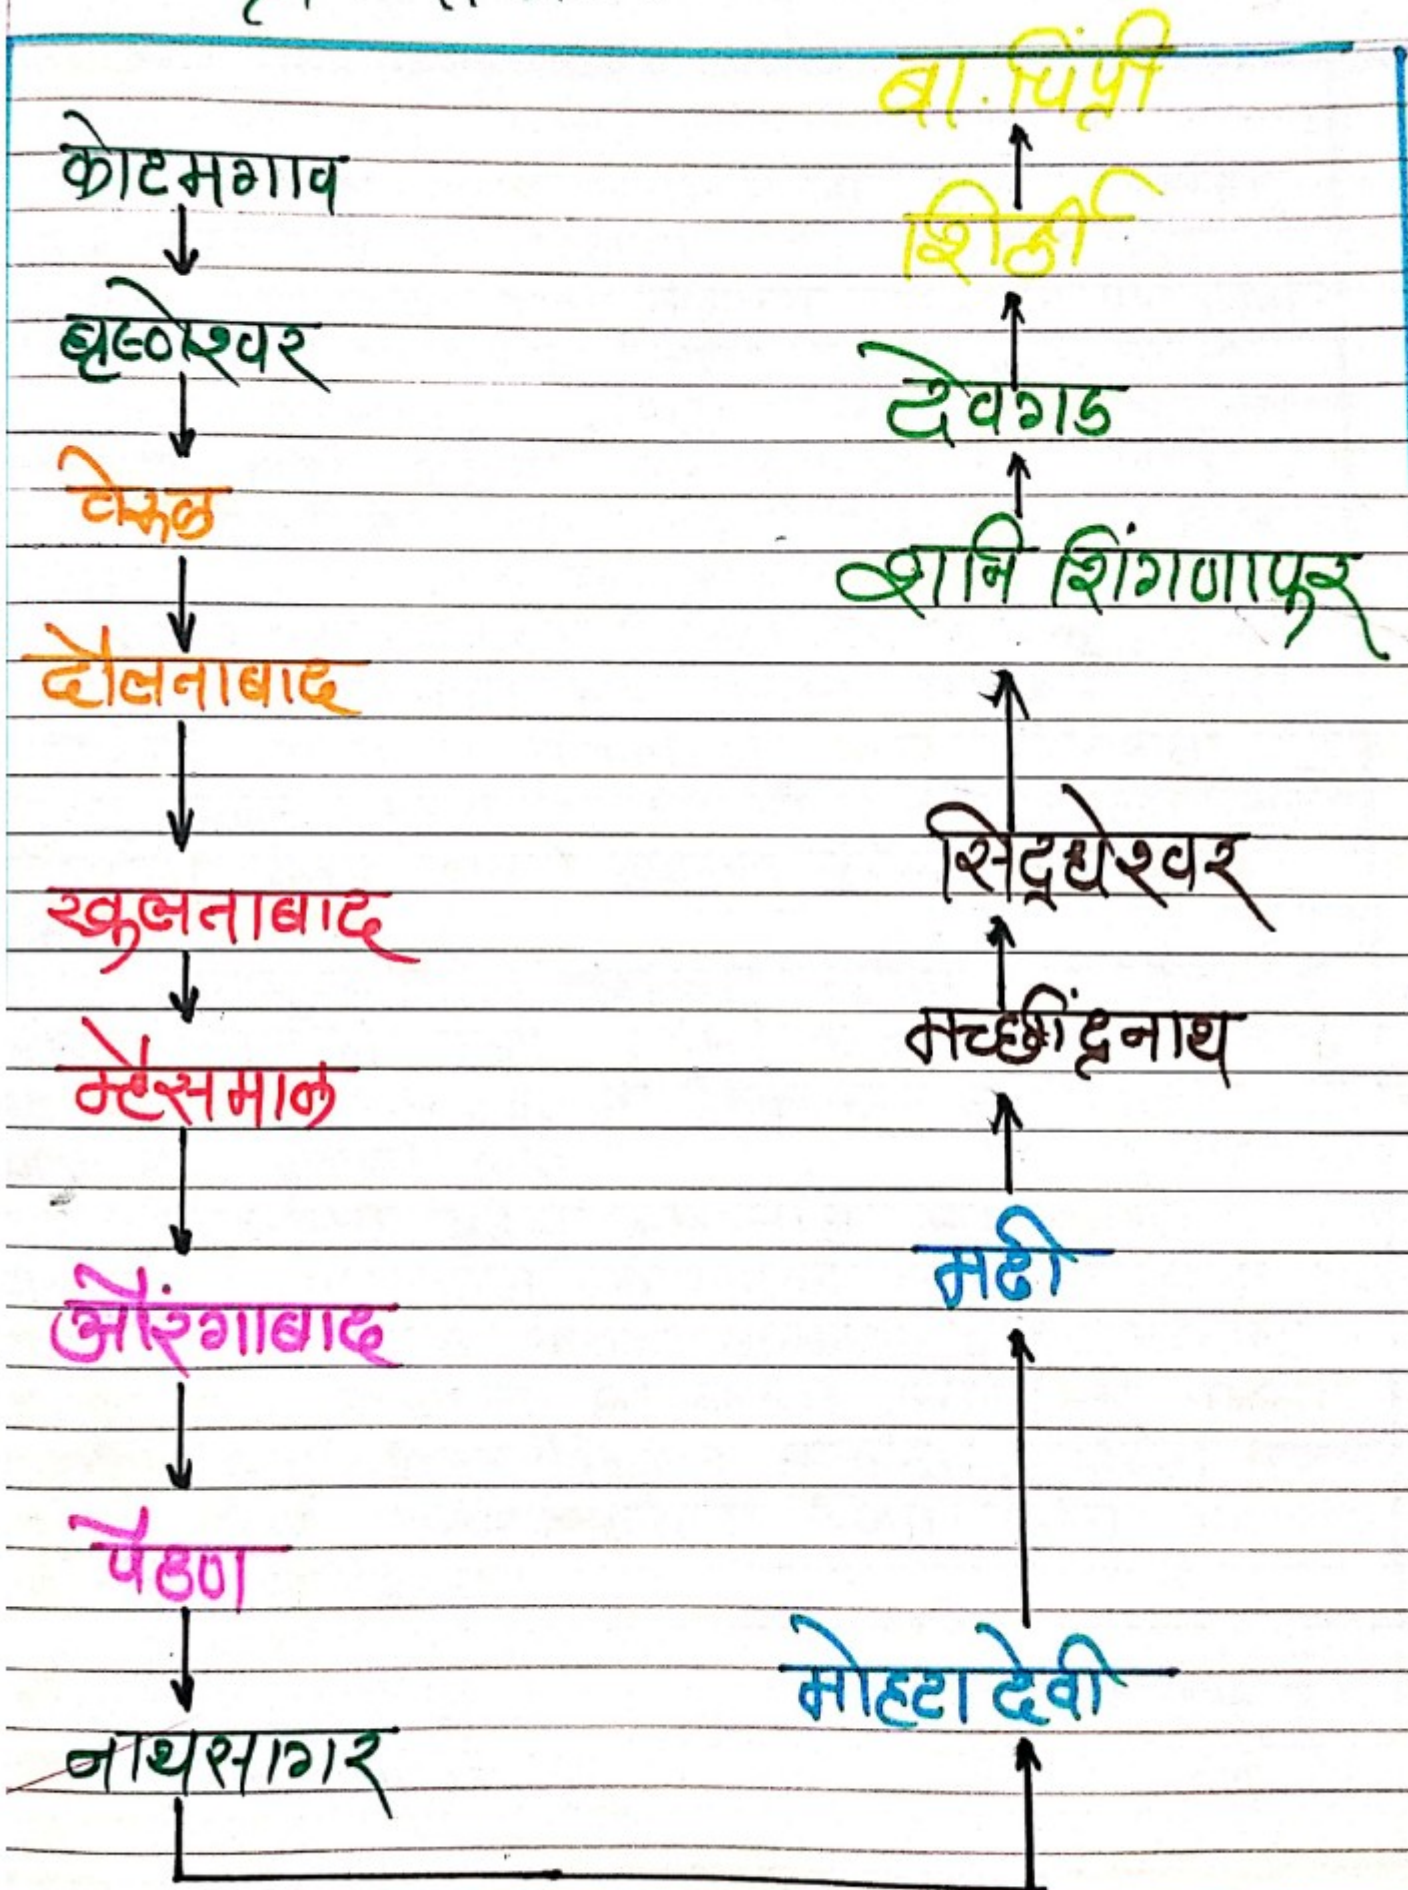 कोटमगाव
घृष्णेश्वर
वेरूळ
दौलताबाद
खुलताबाद
म्हैसमाळ
औरंगाबाद
पैठण
नाथसागर
मोहटा देवी
मढी
मच्छींद्रनाथ
सिद्धेश्वर
शनि शिंगणापुर
देवगड
शिर्डी
बा. पिंप्री